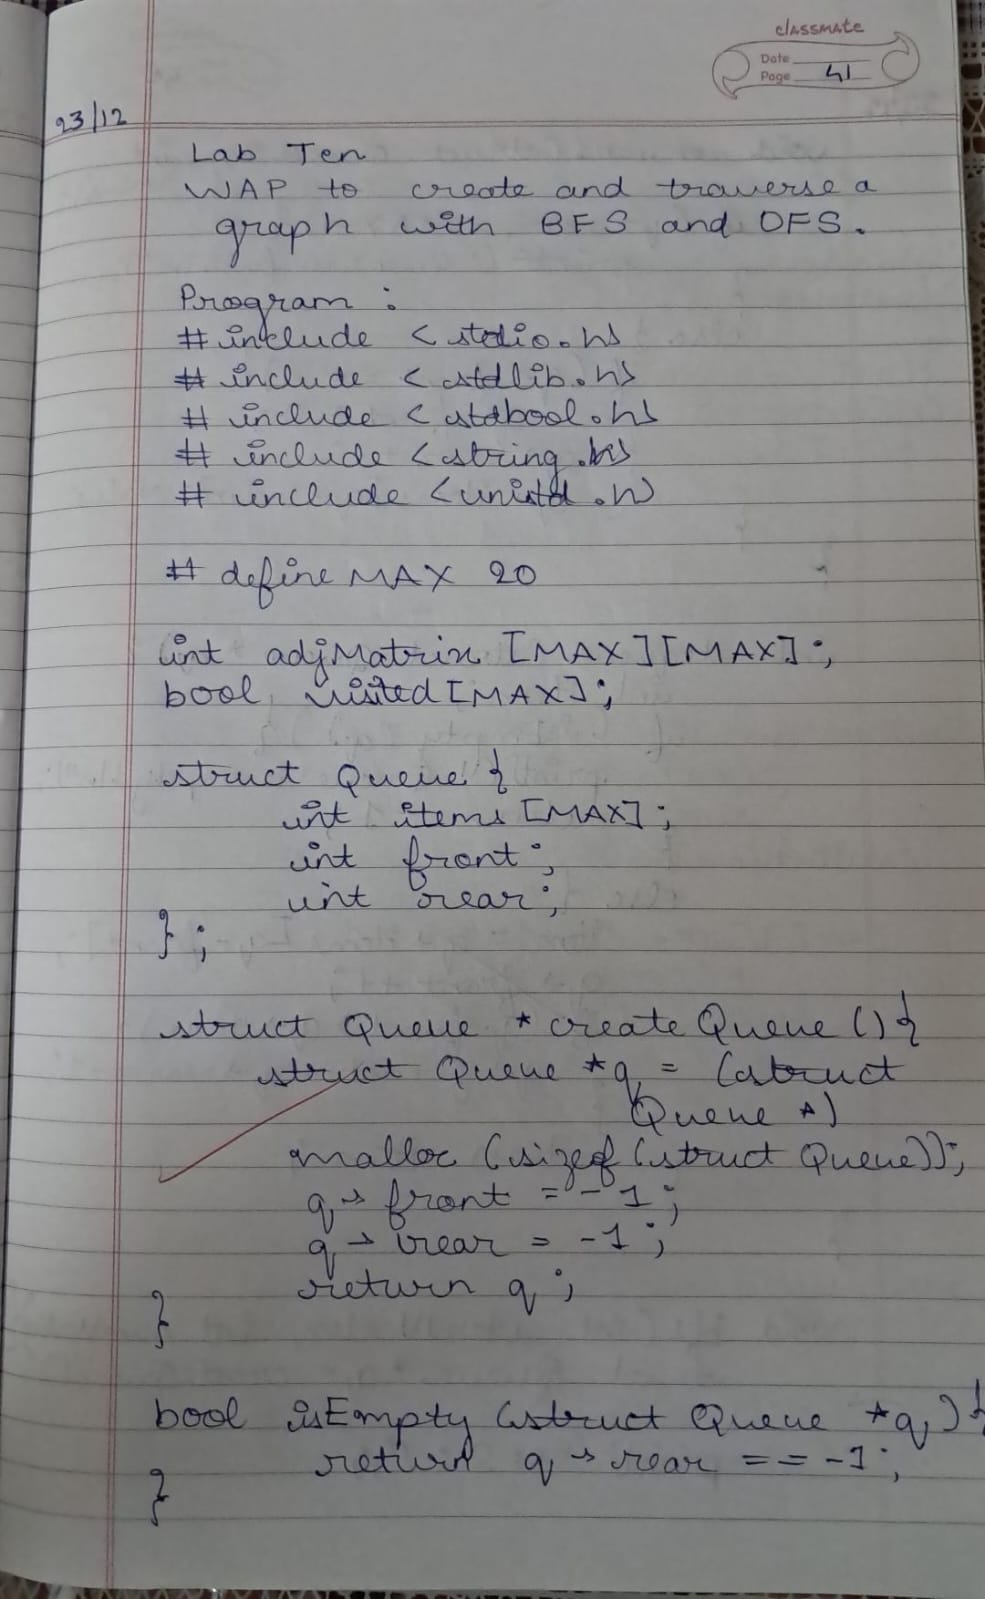 classmate
Date
Page 41
23/12
Lab Ten
WAP to create and traverse a
graph with BFS and DFS.
Program :
# include <stdio.h>
# include <stdlib.h>
# include <stdbool.h>
# include <string.h>
# include <unistd.h>
# define MAX 20
int adjMatrix [MAX][MAX];
bool visited [MAX];
struct Queue {
int items [MAX];
int front;
int rear;
};
struct Queue * createQueue () {
struct Queue *q = (struct
Queue *)
malloc (sizeof (struct Queue));
q → front = -1;
q → rear = -1;
return q;
}
bool isEmpty (struct Queue *q) {
return q → rear == -1;
}